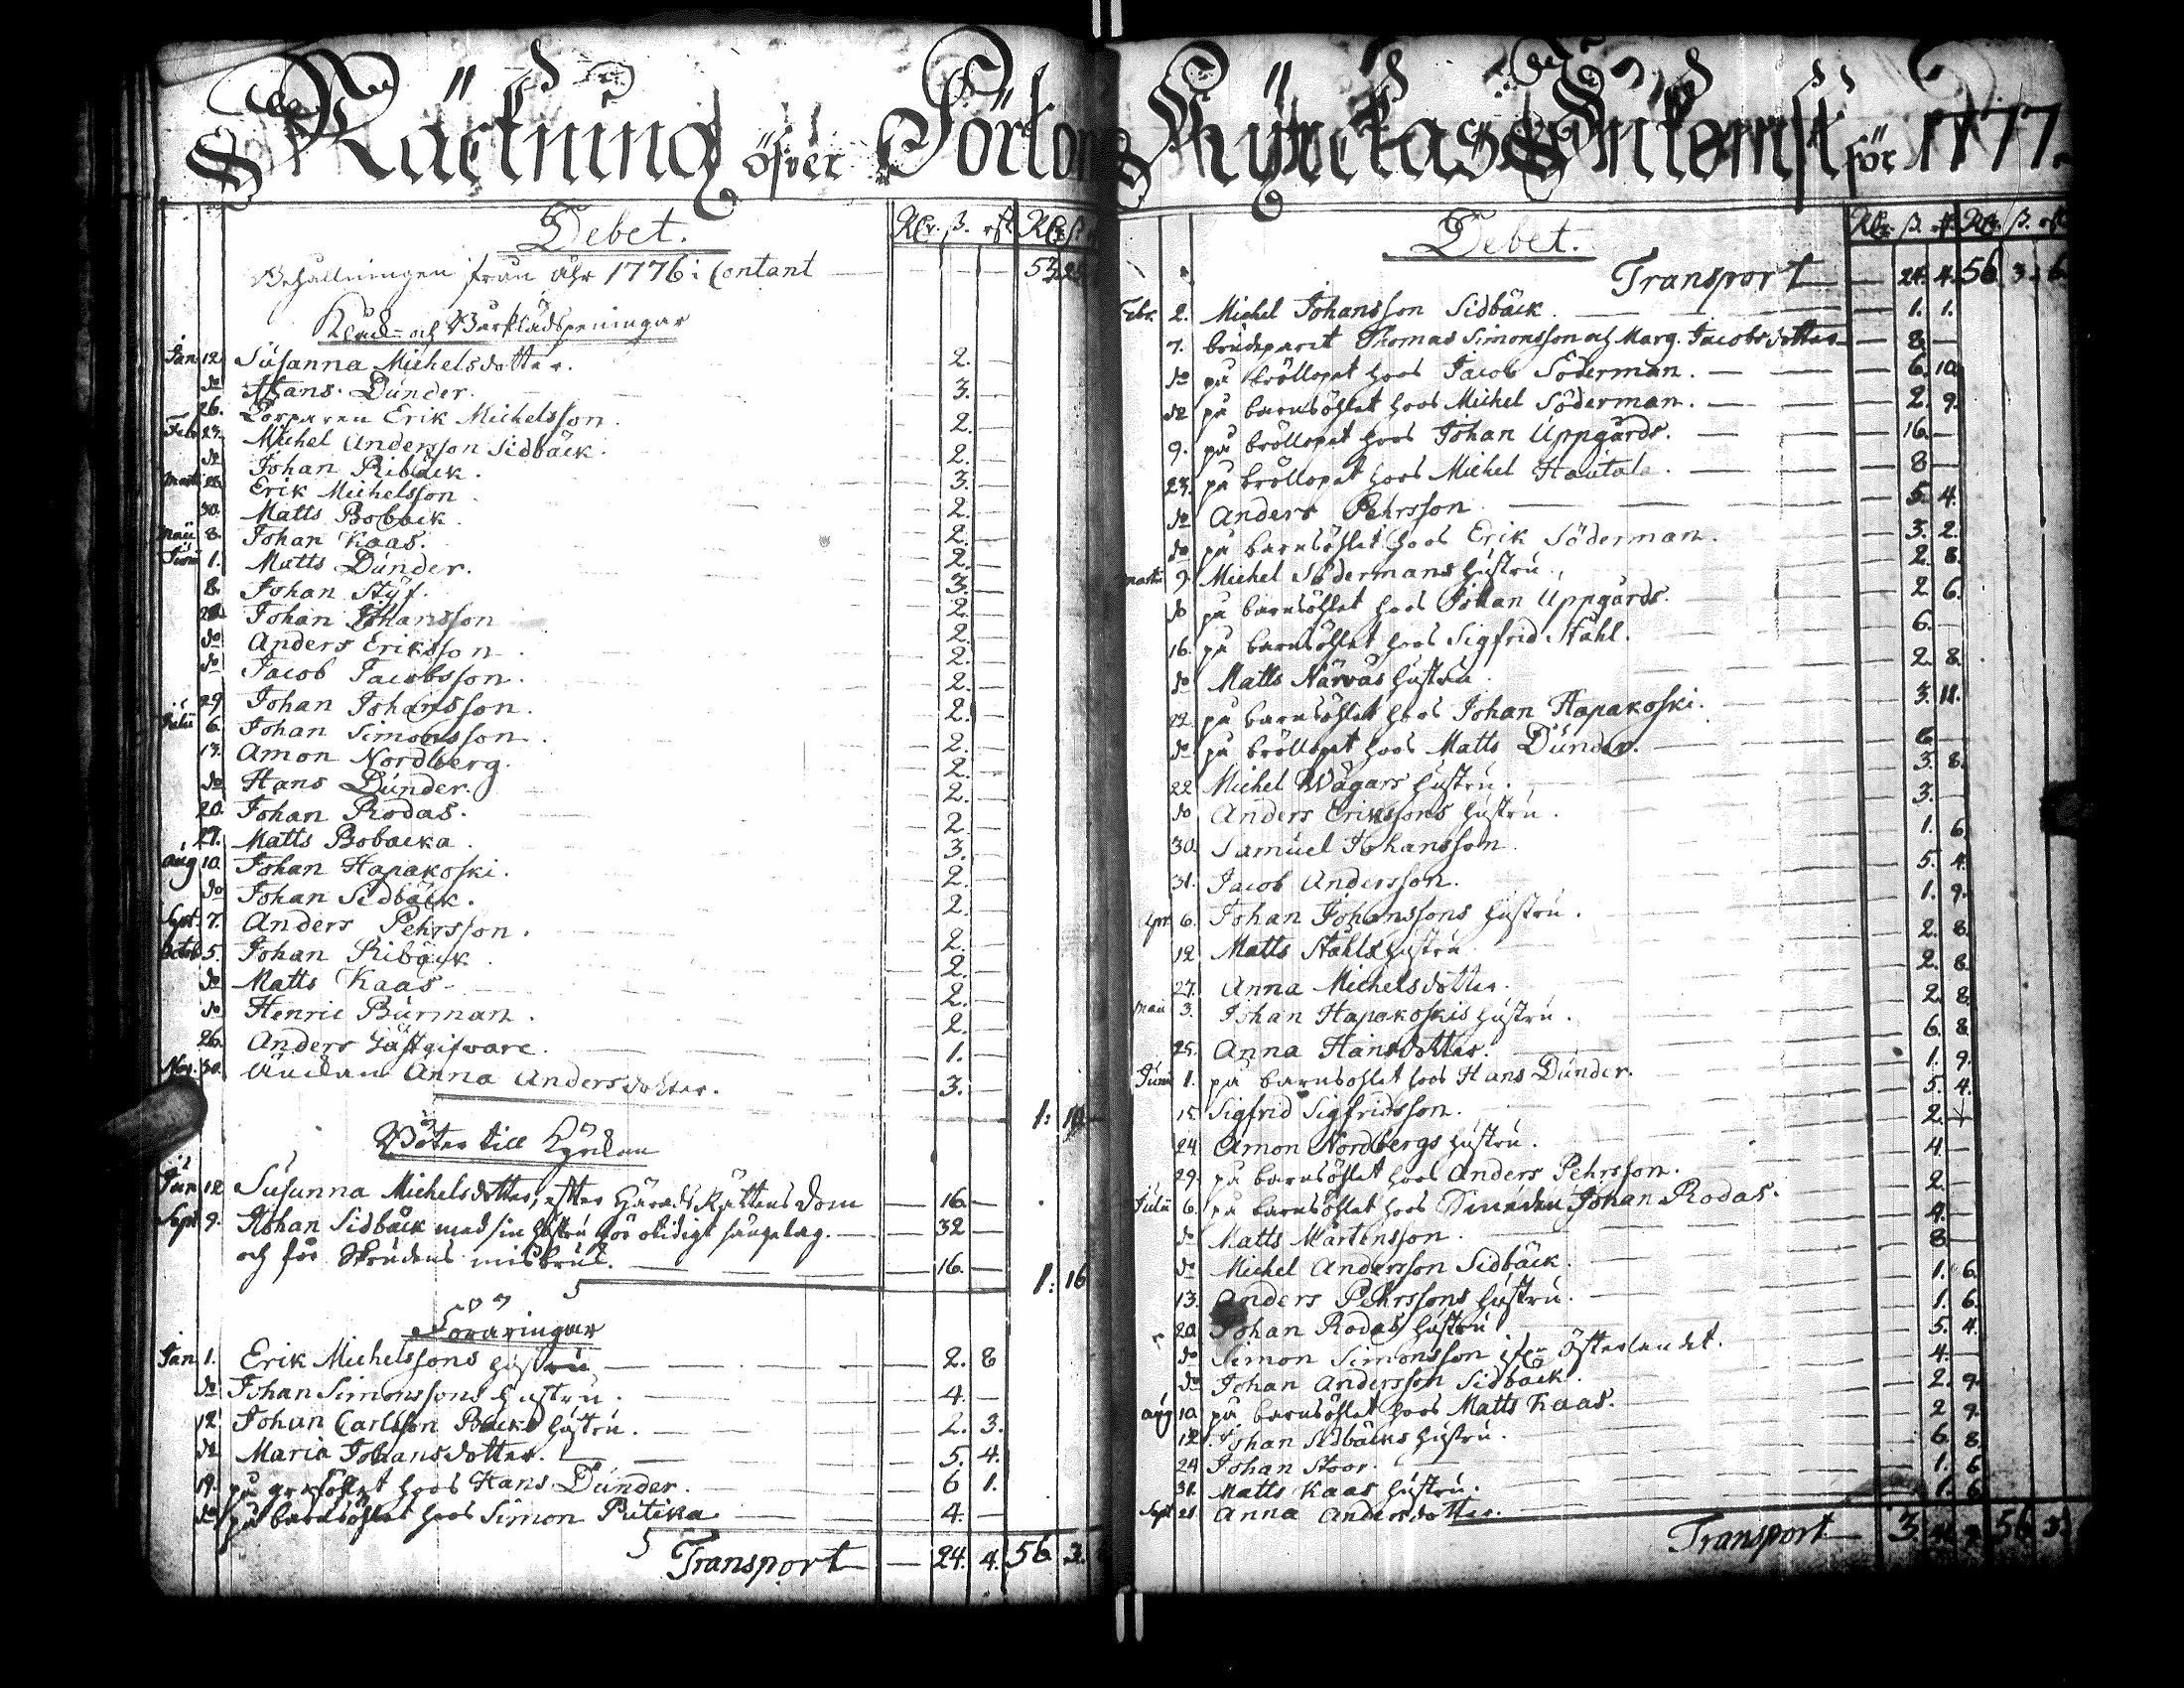 Räckning öfver Pörtom
Debet.
Rdr. ß. rst. Rdr ß
Behållningen från åhr 1776 i Contant — 53. 25
Klock- och Barklädspeningar
Jan 12. Susanna Michelsdotter. 2. —
do Hans Dunder. 3. —
26. Corparen Erik Michelsson. 2. —
Febr 23. Michel Andersson Sidbäck. 2. —
do Johan Ribäck. 3. —
Martii 23. Erik Michelsson 2. —
30. Matts Boback. 2. —
Maii 8. Johan Kaas. 2. —
Junii 1. Matts Dunder. 3. —
8. Johan Styf. 2. —
Johan Johansson 2. —
do Anders Eriksson 2. —
do Jacob Jacobsson. 2. —
29 Johan Johansson. 2. —
Julii 6. Johan Simonsson. 2. —
13. Amon Nordberg. 2. —
do Hans Dunder. 2. —
20. Johan Rodas. 2 —
27. Matts Bobacka. 3. —
Aug 10. Johan Hapakoski. 2. —
do Johan Sidbäck. 2. —
Sept. 7. Anders Pehrsson. 2. —
Octob 5. Johan Ribäck. 2. —
do Matts Kaas 2. —
do Henric Burman. 2. —
26. Anders Gästgifware. 1. —
Nov. 30. Änckan Anna Andersdotter. 3. —
1: 10
Böter till Kyrckan
Jan 12 Susanna Michelsdotter, efter HäradsRättens dom — 16. —
Sept 9. Johan Sidbäck med sin hustru för otidigt sängelag. — 32 —
och för Skrudens misbruk. — 16. —
1: 16
Föräringar
Jan 1. Erik Michelssons hustru — 2. 8
do Johan Simonssons hustru. — 4. —
12. Johan Carlsson Backs hustru. — 2. 3.
do Maria Johansdotter. — 5. 4.
19. på graföhlet hoos Hans Dunder. — 6 1.
do på barnsöhlet hoos Simon Putika — 4. —
Transport — 24. 4. 56. 3.
Kyrckas Inkomst för 1777.
Debet.
Rdr. ß. rst. Rdr. ß. rst
Transport — 24. 4. 56 3. 6.
Febr. 2. Michel Johansson Sidbäck. — 1. 1.
7. brudeparet Thomas Simonsson och Marg. Jacobsdotter — 8. —
do på bröllopet hoos Jacob Söderman. — 6. 10
do på barnsöhlet hoos Michel Söderman. — 2. 9.
9. på bröllopet hoos Johan Uppgårds. — 16. —
23. på bröllopet hoos Michel Hautala. — 8 —
do Anders Pehrsson — 5. 4.
do på barnsöhlet hoos Erik Söderman. 3. 2.
Martii 9. Michel Södermans hustru. 2. 8.
do på barnsöhlet hoos Johan Uppgårds. 2 6.
16. på barnsöhlet hoos Sigfrid Ståhl. 6. —
do Matts Närvas hustru. 2. 8.
22 på barnsöhlet hoos Johan Hapakoski. 3. 11.
do på bröllopet hoos Matts Dunder. — 6 —
22 Michel Wägars hustru. 3. 8.
do Anders Erikssons hustru. 3. —
30. Samuel Johansson. 1. 6.
31. Jacob Andersson. 5. 4.
Apr 6. Johan Johanssons hustru. 1. 9.
12 Matts Ståhls hustru. 2. 8.
27. Anna Michelsdotter. 2. 8.
Maii 3. Johan Hapakoskis hustru. 2. 8
25. Anna Hansdotter. 6. 8
Junii 1. på barnsöhlet hoos Hans Dunder. 1. 9.
15. Sigfrid Sigfridsson. 5. 4.
24 Amon Nordbergs hustru. 2. —
29. på barnsöhlet hoos Anders Pehrsson. 4. —
Julii 6. på barnsöhlet hoos Smeden Johan Rodas. 2. —
do Matts Mårtensson. 4. —
do Michel Andersson Sidbäck. 8 —
13. Anders Pehrssons hustru. 1. 6.
20 Johan Rodas hustru 1. 6.
do Simon Simonsson ifr. Österlandet. 5. 4.
do Johan Andersson Sidbäck. 4. —
Aug 10 på barnsöhlet hoos Matts Kaas. 2. 9.
12. Johan Sidbäcks hustru. 2 9.
24 Johan Stoor. 6. 8.
31. Matts Kaas hustru. 1. 6
Sept 21 Anna Andersdotter. 1. 6
Transport — 3. 56